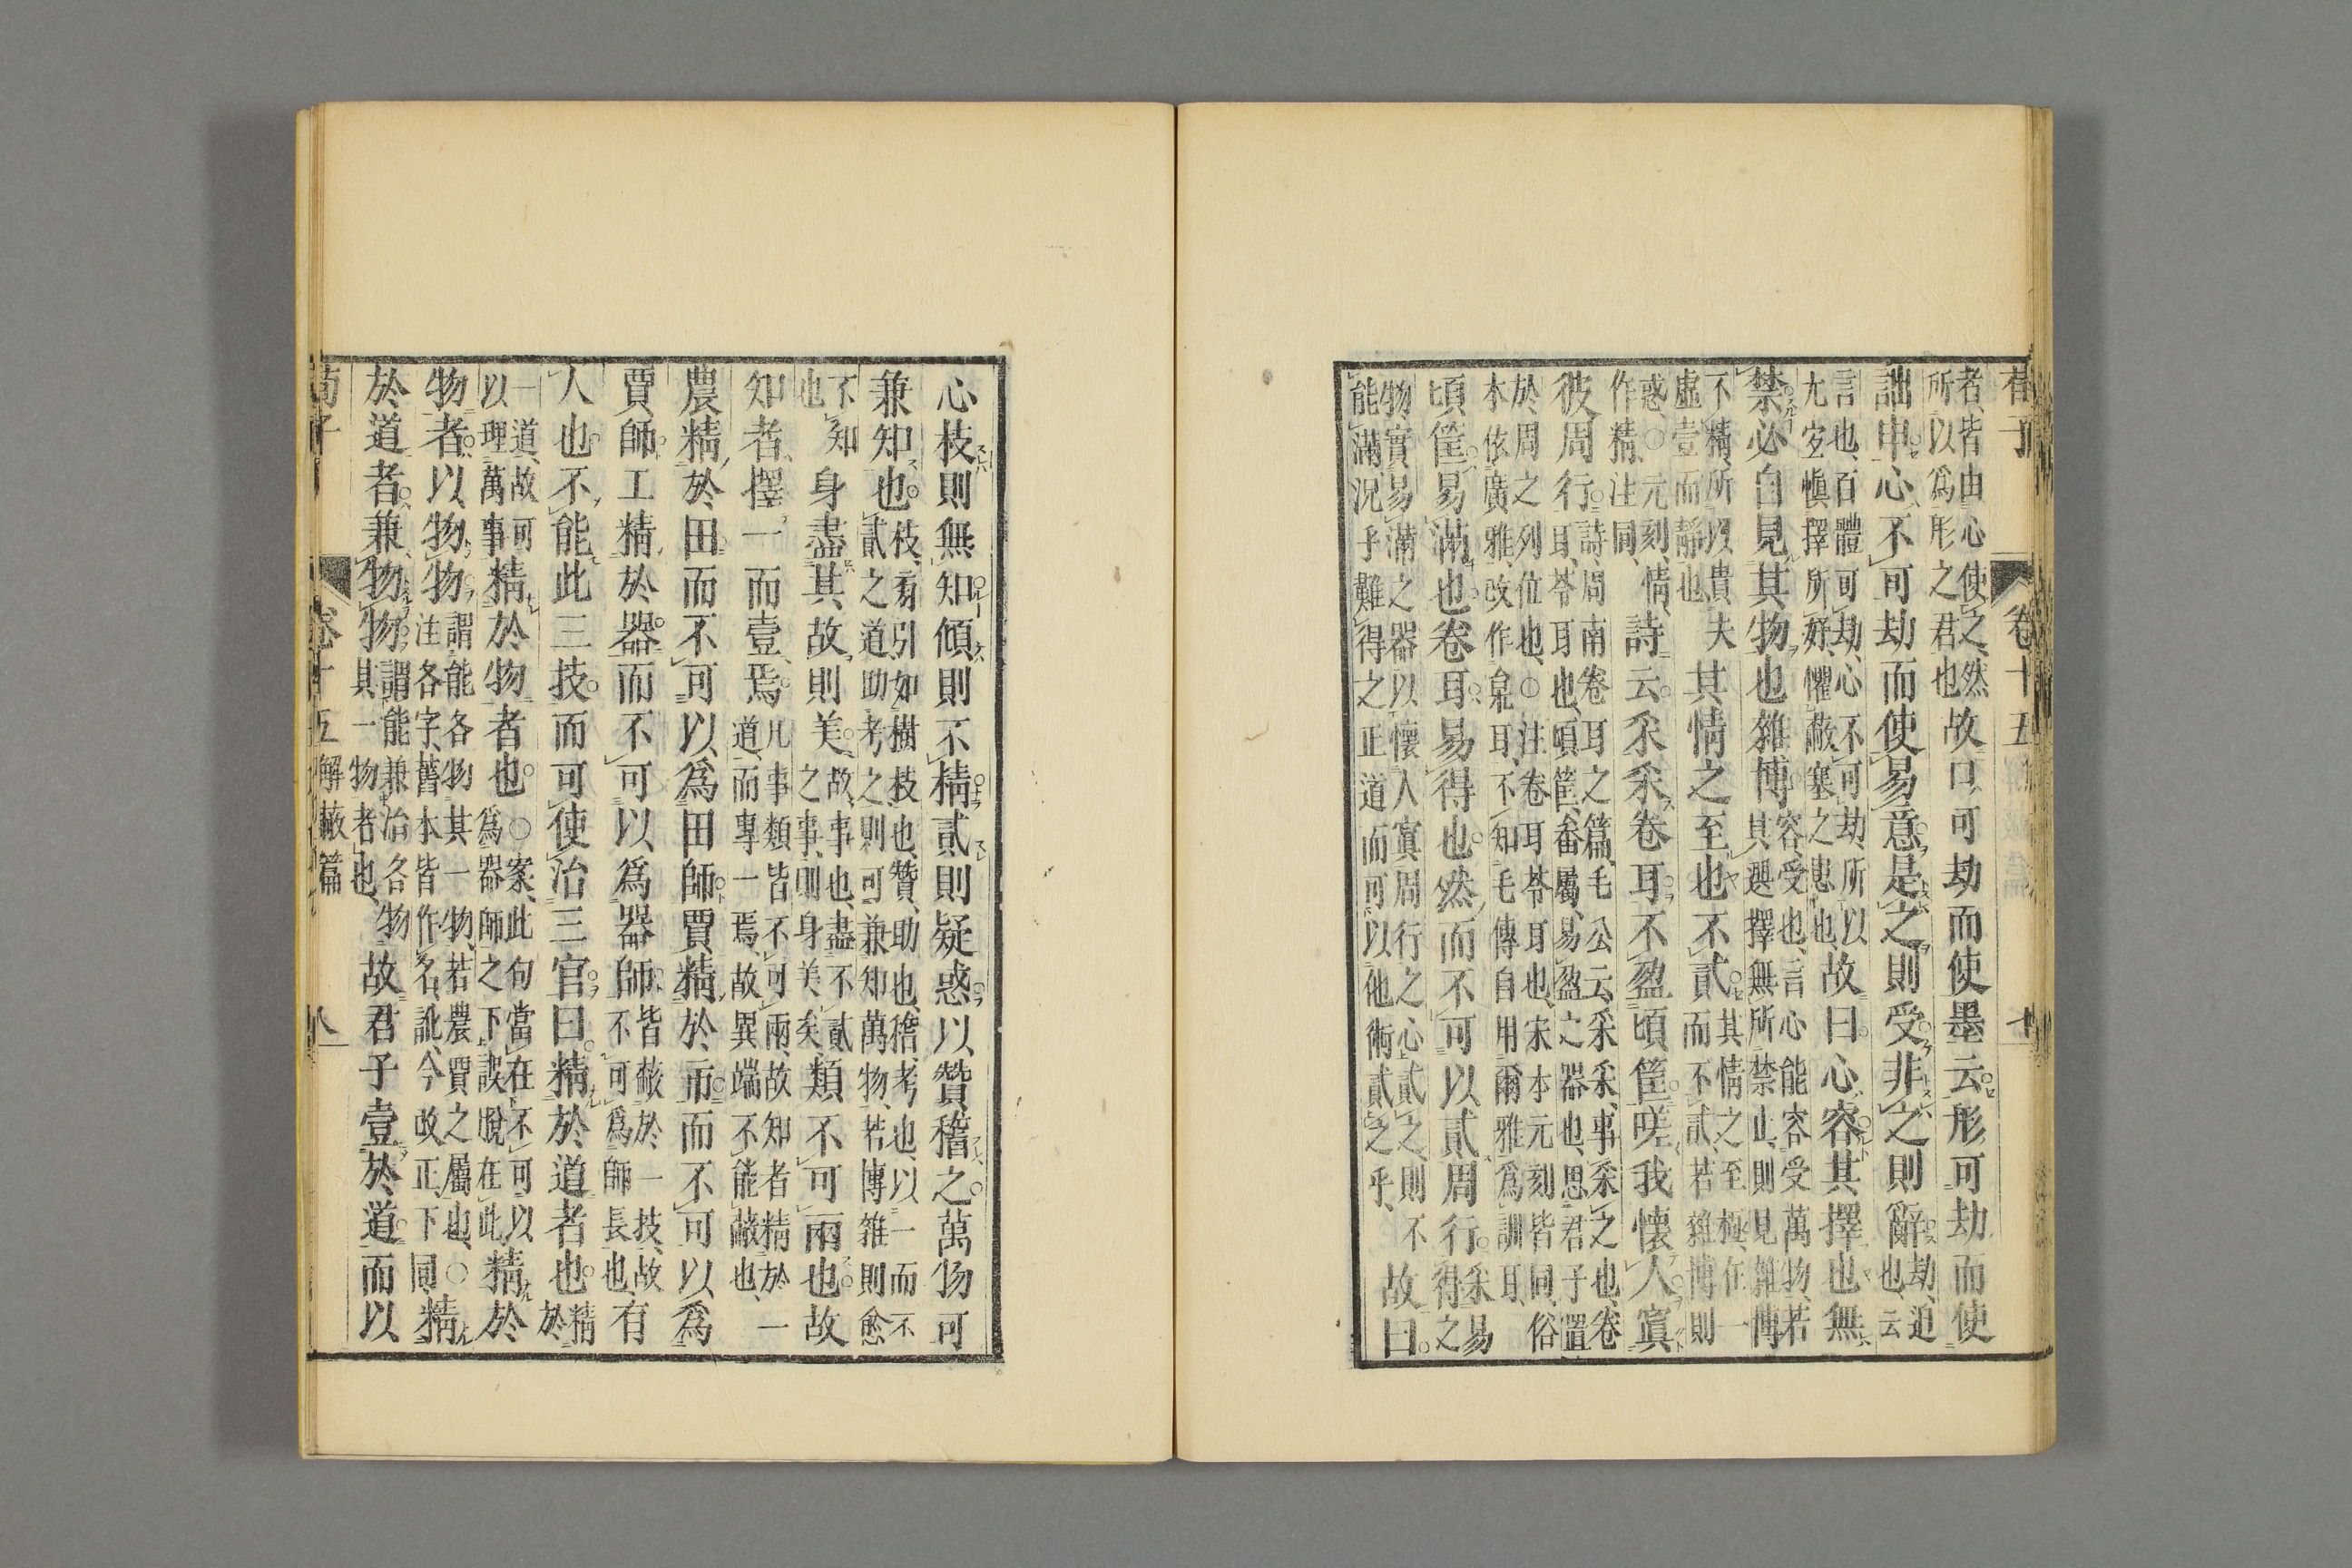 荀子 卷十五 七
者、皆由心使之、然
所以爲形之君也
故口可劫而使墨云形可劫而使
詘申心不可劫而使易意是之則受非之則辭
劫、迫
也、云
言也、百體可劫、心不可劫、所以
尤宜愼擇所好、懼蔽塞之患也、
故曰心容其擇也無
禁必自見其物也雜博
容、受也、言心能容受萬物、若
其選擇無所禁止、則見雜博
不精、所以貴夫
虛壹而靜也
其情之至也不貳
其情之至極、在一
而不貳、若雜博則
惑、○元刻、情、
作精、注同、
詩云采采卷耳不盈頃筐嗟我懷人寘
彼周行
詩、周南卷耳之篇、毛公云、采采、事采之也、卷
耳、苓耳也、頃筐、畚屬、易盈之器也、思君子置
於周之列位也、○注卷耳苓耳也、宋本元刻皆同、俗
本依廣雅、改作枲耳、不知毛傳自用爾雅爲訓耳、
頃筐易滿也卷耳易得也然而不可以貳周行
采易
得之
物、實易滿之器、以懷人寘周行之心貳之、則不
能滿、況乎難得之正道而可以他術貳之乎、
故曰
心枝則無知傾則不精貳則疑惑以贊稽之萬物可
兼知也
枝、旁引如樹枝也、贊、助也、稽、考也、以一而不
貳之道、助考之、則可兼知萬物、若博雜則愈
不知
也
身盡其故則美
故、事也、盡不貳
之事、則身美矣、
類不可兩也故
知者擇一而壹焉
凡事類皆不可兩、故知者精於一
道、而專一焉、故異端不能蔽也、
農精於田而不可以爲田師賈精於市而不可以爲
賈師工精於器而不可以爲器師
皆蔽於一技、故
不可爲師長也、
有
人也不能此三技而可使治三官曰精於道者也
精
於
一道、故可
以理萬事
精於物者也
○案、此句當在不可以
爲器師之下、誤脫在此、
精於
物者以物物
謂能各物其一物、若農賈之屬也、○
注各字、舊本皆作名、訛、今改正、下同、
精
於道者兼物物
謂能兼治各物
其一物者也、
故君子壹於道而以
荀子 卷十五 解蔽篇 八